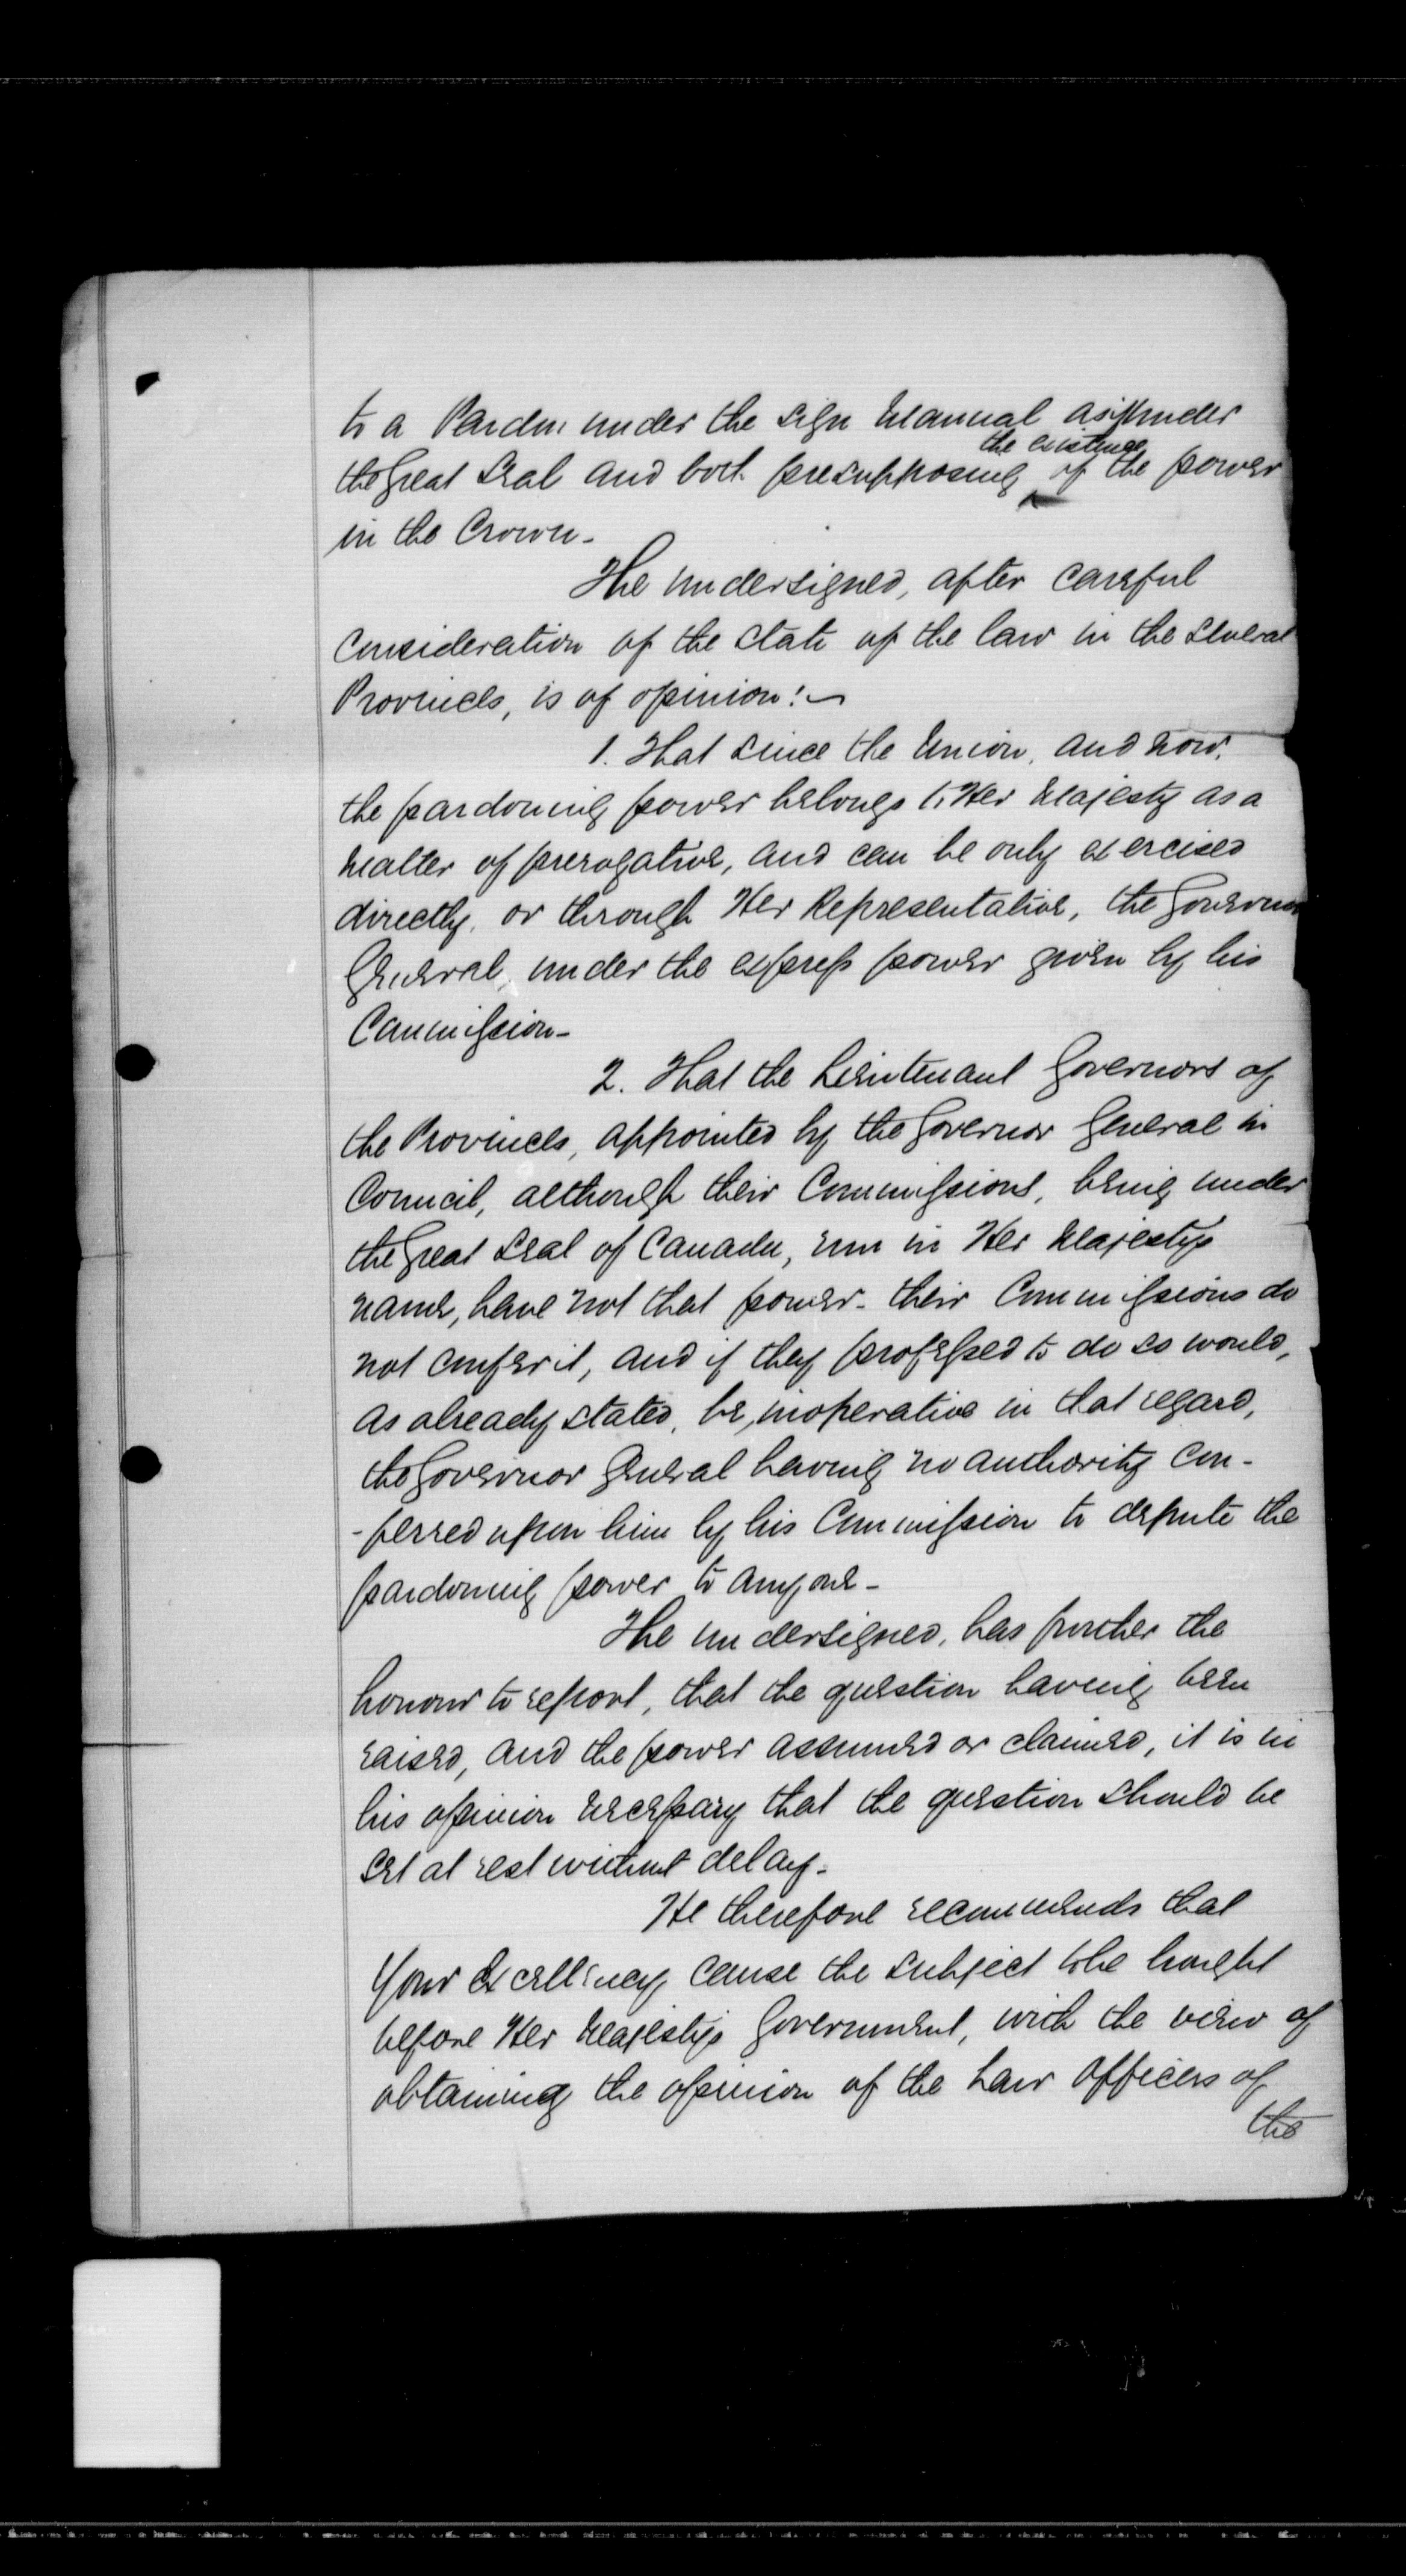 to a Pardon under the Sign Manual as if under
the existence
the Great Seal and both presupposing of the power
in the Crown.
The undersigned, after careful
consideration of the state of the law in the several
Provinces, is of opinion:-
1. That since the Union, and now,
the pardoning power belongs to Her Majesty as a
matter of prerogative, and can be only exercised
directly, or through Her Representative, the Governor
General, under the express power given by his
Commission-
2. That the Lieutenant Governors of
the Provinces, appointed by the Governor General in
Council, although their Commissions, being under
the Great Seal of Canada, run in Her Majesty's
name, have not that power- their Commissions do
not confer it, and if they professed to do so would,
as already stated, be, inoperative in that regard,
the Governor General having no authority con-
-ferred upon him by his Commission to depute the
pardoning power to any one-
The undersigned, has further the
honour to report, that the question having been
raised, and the power assumed or claimed, it is in
his opinion necessary that the question should be
set at rest without delay-
He therefore recommends that
Your Excellency cause the subject to be brought
before Her Majesty's Government, with the view of
obtaining the opinion of the Law Officers of
the